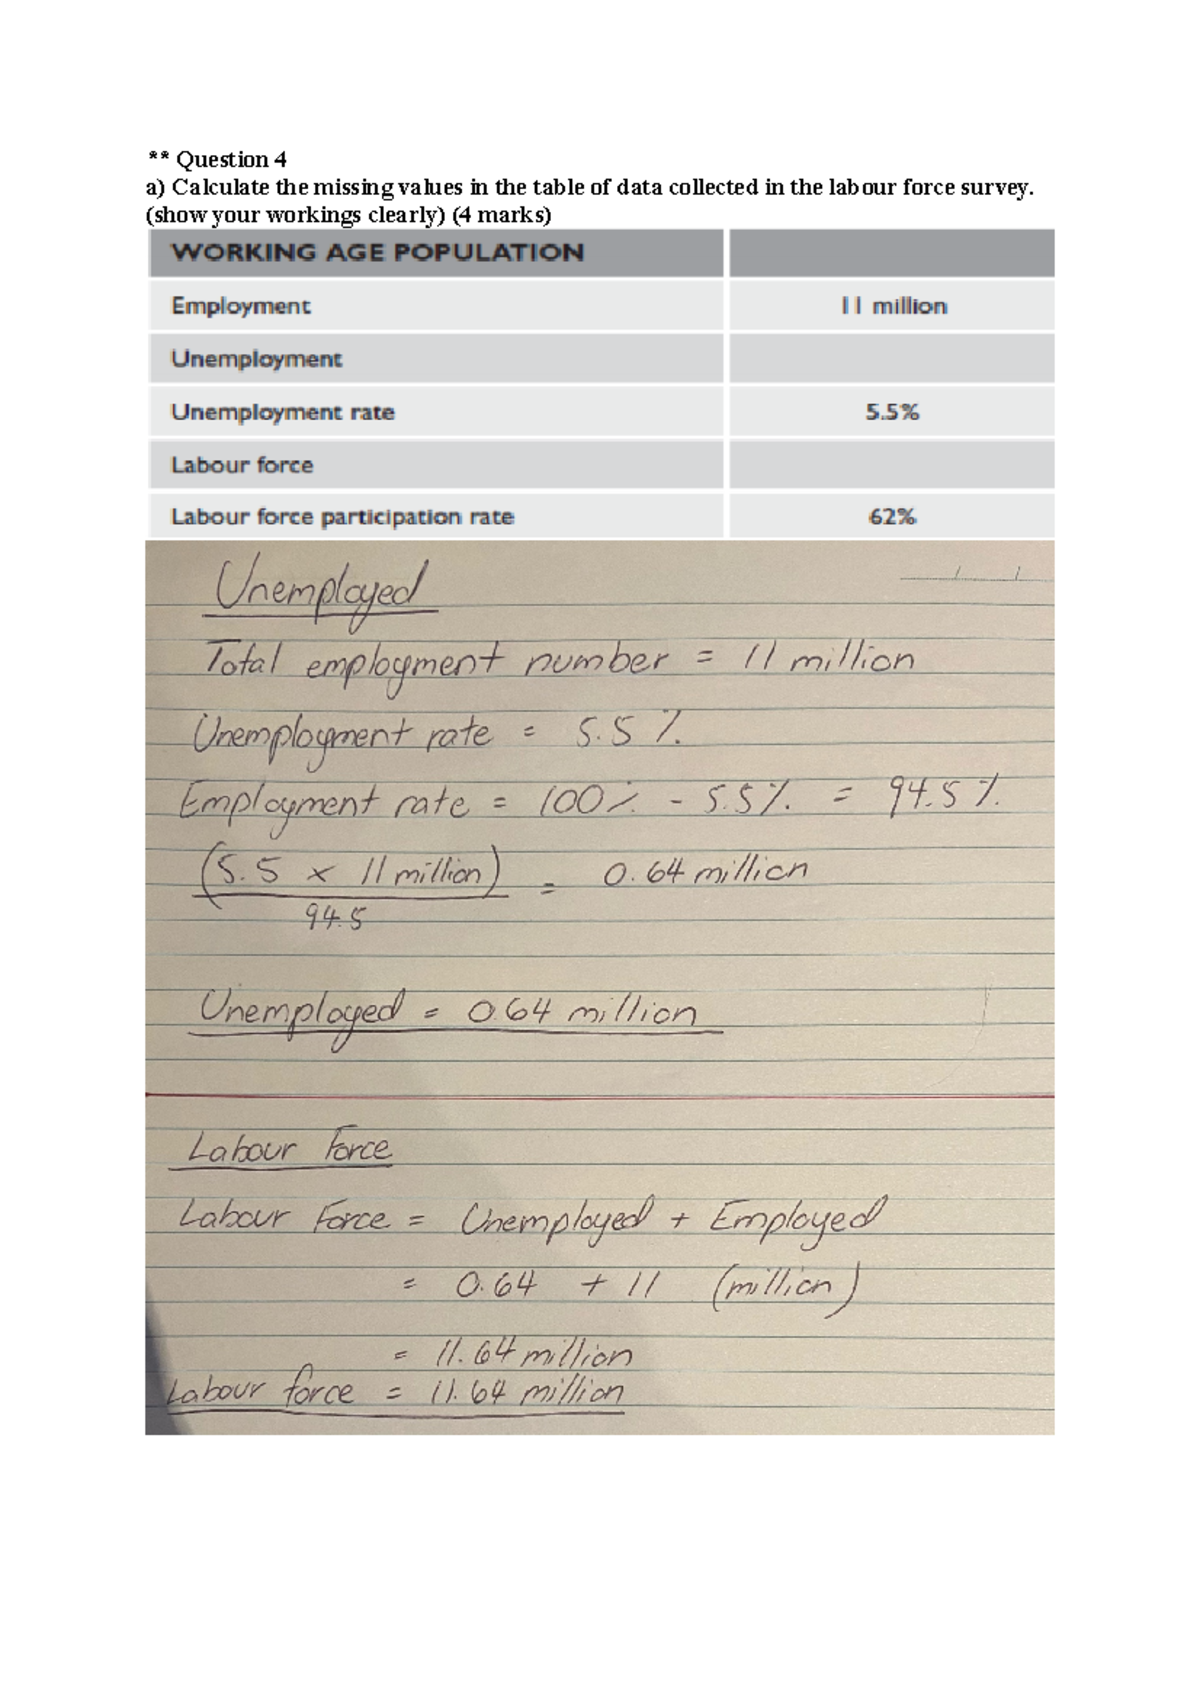 ** Question 4
a) Calculate the missing values in the table of data collected in the labour force survey.
(show your workings clearly) (4 marks)
WORKING AGE POPULATION
Employment 11 million
Unemployment
Unemployment rate 5.5%
Labour force
Labour force participation rate 62%
Unemployed
Total employment number = 11 million
Unemployment rate = 5.5%
Employment rate = 100% - 5.5% = 94.5%
(5.5 x 11 million) = 0.64 million
94.5
Unemployed = 0.64 million
Labour Force
Labour Force = Unemployed + Employed
= 0.64 + 11 (million)
= 11.64 million
Labour force = 11.64 million